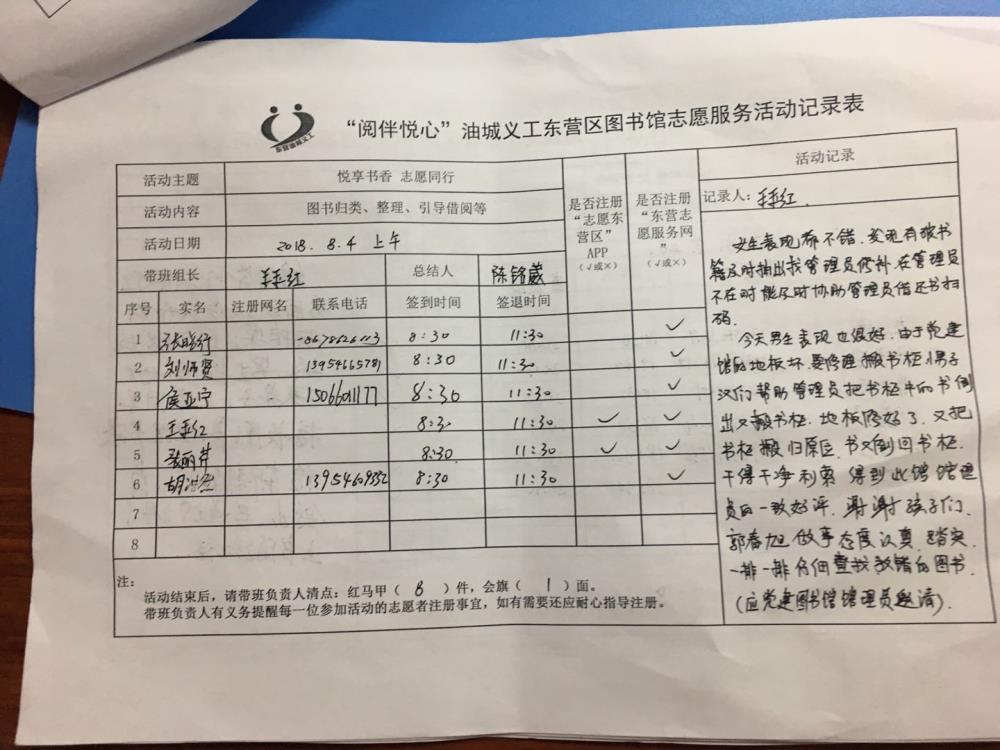 东营油城义工
“阅伴悦心”油城义工东营区图书馆志愿服务活动记录表
活动主题 悦享书香 志愿同行
活动内容 图书归类、整理、引导借阅等
活动日期 2018.8.4 上午
带班组长 总结人 陈铭葳
序号 实名 注册网名 联系电话 签到时间 签退时间
是否注册“志愿东营区”APP(√或×)
是否注册“东营志愿服务网”(√或×)
1 8:30 11:30 ✓
2 刘师贤 13954665781 8:30 11:30 ✓
3 侯亚宁 8:30 11:30 ✓
4 8:30 11:30 ✓ ✓
5 8:30 11:30 ✓ ✓
6 8:30 11:30 ✓
7
8
注:
活动结束后,请带班负责人清点:红马甲( 8 )件,会旗( 1 )面。
带班负责人有义务提醒每一位参加活动的志愿者注册事宜,如有需要还应耐心指导注册。
活动记录
记录人:
女生表现都不错.发现有破书
籍及时抽出找管理员修补.在管理员
不在时能及时协助管理员借还书扫
码.
今天男生表现也很好.由于党建
馆的地板坏.要修理搬书柜.小男子
汉们帮助管理员把书柜中的书倒
出又搬书柜.地板修好了.又把
书柜搬归原位.书又倒回书柜.
干得干净利索 得到此馆馆理
员的一致好评.谢谢孩子们.
郭春旭做事态度认真.踏实.
一排一排仔细查找放错的图书.
(应党建图书馆馆理员邀请).